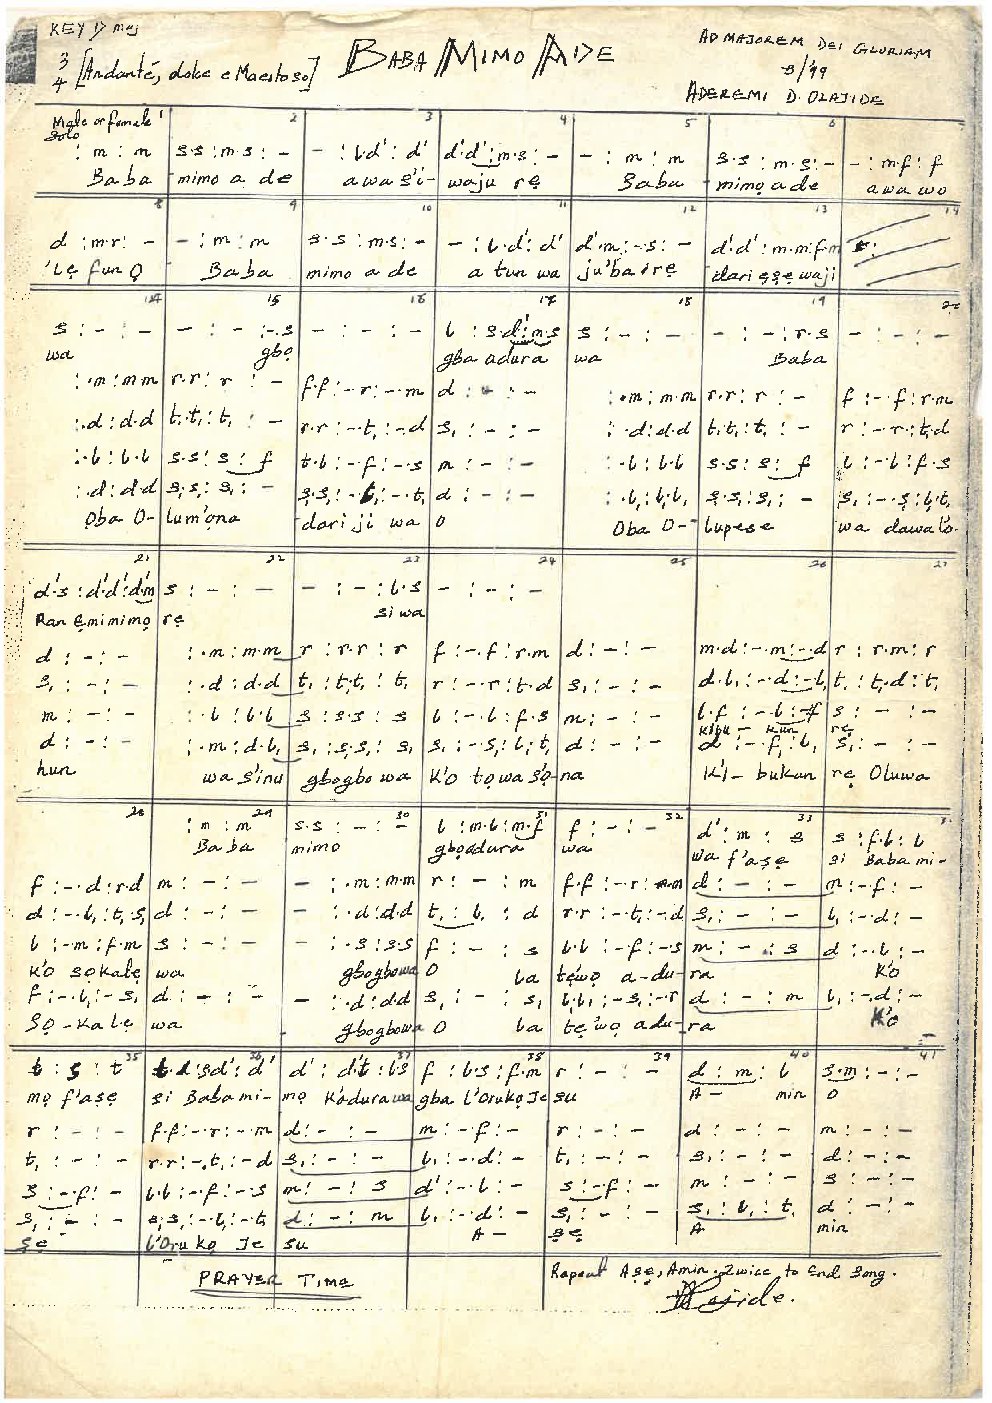 KEY D maj
3
4 [Andanté, dolce e Maestoso]
BABA MIMO A DE
AD MAJOREM DEI GLORIAM
8/99
ADEREMI D. OLAJIDE
Male or female solo
1 2 3 4 5 6 7
: m : m | s·s : m·s : - | - : l·d' : d' | d'·d' : m·s : - | - : m : m | s·s : m·s : - | - : m·f : f
Baba mimo a de awa s'i- waju rẹ Baba mimọ a de awa wo
8 9 10 11 12 13 14
d : m·r : - | - : m : m | s·s : m·s : - | - : l·d' : d' | d'·m : - s : - | d'·d' : m·m : f·m | s :
'Lẹ fun Ọ Baba mimo a de a tun wa ju'ba i rẹ dari ẹsẹ waji
14 15 16 17 18 19 20
s : - : - | - : - : -·s | - : - : - | l : s·d' : m·s | s : - : - | - : - : r·s | - : - : -
wa gbọ gba adura wa Baba
: ·m : m·m | r·r : r : - | f·f : - r : - ·m | d : - : - | : ·m : m·m | r·r : r : - | f : - · f : r·m
: ·d : d·d | t,·t, : t, : - | r·r : - t, : -d | s, : - : - | : ·d : d·d | t,·t, : t, : - | r : - · r : t,·d
: ·l : l·l | s·s : s : f | l·l : - f : - · s | m : - : - | : ·l : l·l | s·s : s : f | l : - · l : f·s
: ·d : d·d | s,·s, : s, : - | s,·s, : - l, : - t, | d : - : - | : ·l, : l,·l, | s,·s, : s, : - | s, : - · s, : l,·t,
Ọba O- lum'ọna dari ji wa o Oba O- lupese wa dawa lo-
21 22 23 24 25 26 27
d'·s : d'·d' : d'·m | s : - : - | - : - : l·s | - : - : -
Ran Ẹmi mimọ rẹ si wa
d : - : - | : ·m : m·m | r : r·r : r | f : - · f : r·m | d : - : - | m·d : - m : - d | r : r·m : r
s, : - : - | : ·d : d·d | t, : t,·t, : t, | r : - · r : t,·d | s, : - : - | d·l, : - d : - l, | t, : t,·d : t,
m : - : - | : ·l : l·l | s : s·s : s | l : - · l : f·s | m : - : - | l·f : - l : - f | s : - : -
kibu - kun rẹ
d : - : - | : ·m : d·l, | s, : s,·s, : s, | s, : - · s, : l,·t, | d : - : - | d : - · f, : l, | s, : - : -
hun wa s'inu gbogbo wa K'o tọ wa s'ọ- na K'i- bukun rẹ Oluwa
28 29 30 31 32 33 34
: m : m | s·s : - : - | l : m·l : m·f | f : - : - | d' : m : s | s : f·l : l
Baba mimo gbọadura wa wa f'aṣẹ si Baba mi-
f : - · d : r·d | m : - : - | - : ·m : m·m | r : - : m | f·f : - r : m·m | d : - : - | m : - f : -
d : - · l, : t,·s, | d : - : - | - : ·d : d·d | t, : l, : d | r·r : - t, : - d | s, : - : - | l, : - d : -
l : - m : f·m | s : - : - | - : ·s : s·s | f : - : s | l·l : - f : - s | m : - : s | d : - l : -
K'o sọkalẹ wa gbogbowa O la tẹ'wọ a-du- ra K'o
f : - · l, : - s, | d : - : - | - : ·d : d·d | s, : - : s, | l,·l, : - s, : - r | d : - : m | l, : - d : -
Sọ-kalẹ wa gbogbowa O la tẹ'wọ adu- ra K'o
35 36 37 38 39 40 41
t : s : t | t·d' : s·d' : d' | d' : d'·t : l·s | f : l·s : f·m | r : - : - | d : m : l | s·m : - : -
mọ f'aṣẹ si Baba mi- mọ K'adurawa gba l'Orukọ Je su A- min O
r : - : - | f·f : - r : - m | d : - : - | m : - f : - | r : - : - | d : - : - | m : - : -
t, : - : - | r·r : - t, : - d | s, : - : - | l, : - d : - | t, : - : - | s, : - : - | d : - : -
s : - f : - | l·l : - f : - s | m : - : s | d' : - l : - | s : - f : - | m : - : - | s : - : -
s, : - : - | s,·s, : - l, : - t, | d : - : m | l, : - d : - | s, : - : - | s, : l, : t, | d : - : -
ṣẹ l'Orukọ Je su A- ṣẹ A min
PRAYER TIME
Repeat Aṣẹ, Amin. 2wice to end song.